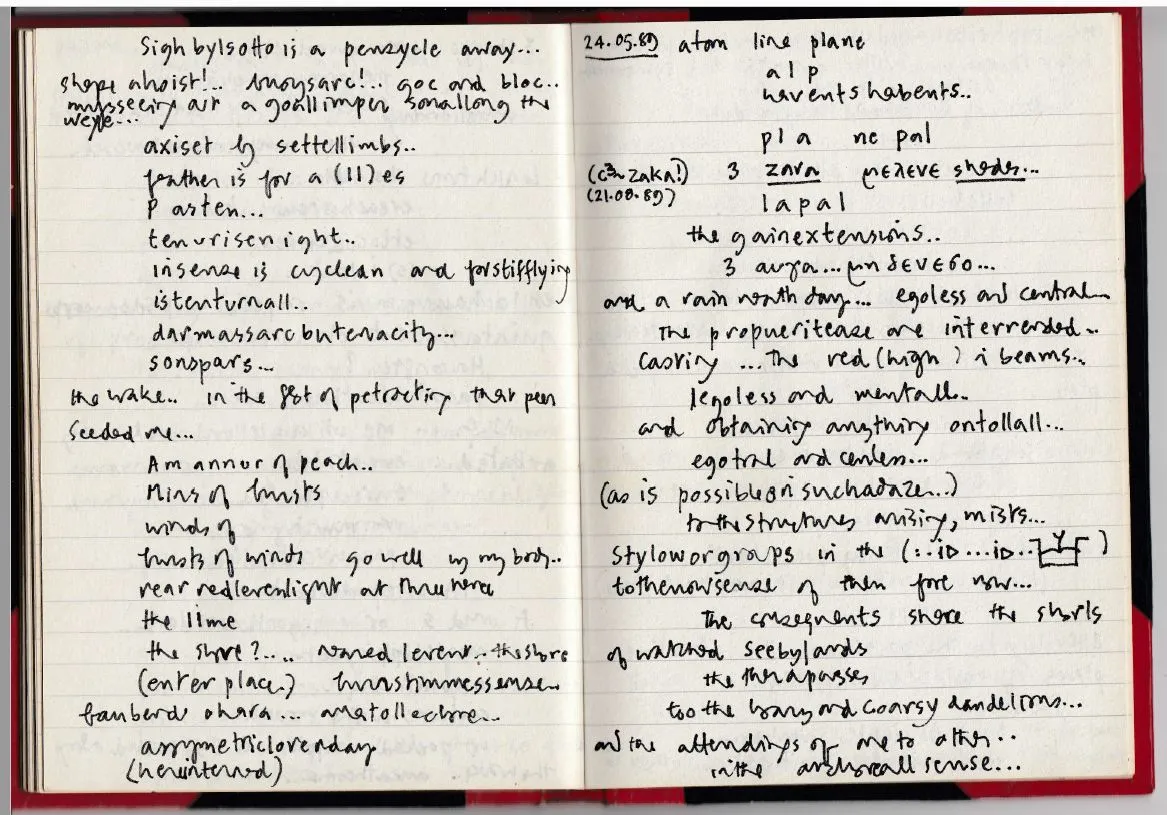 Sighbylsotto is a penzycle away...
shope ahoist!.. buoysarc!.. goc and bloc..
mysseeing art a goallimper sonallong the
weye...
axiset by settellimbs..
feather is for a (ll) es
P asten...
tenurisenight..
insense is cyclean and forstifflying
istenturnall..
darmassarcbutenacity...
sonspars...
the wake.. in the fist of petracting that peen
seeded me...
Amannur of peach..
Mins of hursts
winds of
hursts of winds go well in my body..
near redlevenlight at thru here
the lime
the shore?.... named levent..the shore
(enter place.)
ohara...
assymetriclovenday
(herinterned)
24.05.89 atom line plane
alp
havents habents..
pla ne pal
(c3~ zaka!) 3 zara μελενε sheds...
(21.08.89)
lapal
the gainextensions..
3 αυρα... μη δενεσο...
and a rain north day... egoless and central..
The propueritease are interrended..
Casting ...The red (high ) i beams..
legoless and mentall..
and obtaining anything ontollall...
egotral and cenless...
(as is possible on suchadaze..)
to the structures arising, mists...
Styloworgraps in the (:..iD...iD.. )
tothenowsense of then fore now...
The consequents shore the shorls
of watched seebylands
the therapasses
too the and coarsy dandelions...
and the attendings of one to other..
in the sense...